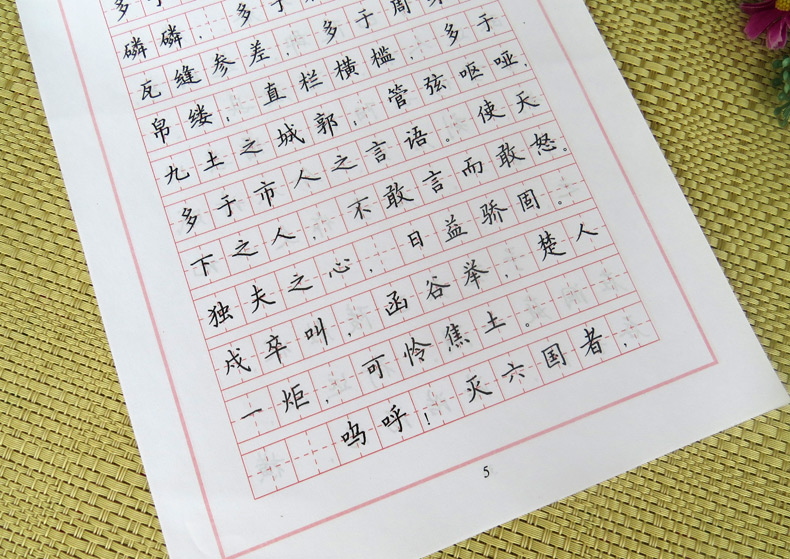 多于
磷磷，多于　　　　周身
瓦缝参差，多于
帛缕；直栏横槛，多于
九土之城郭；管弦呕哑，
多于市人之言语。使天
下之人，不敢言而敢怒。
独夫之心，日益骄固。
戍卒叫，函谷举，楚人
一炬，可怜焦土。
呜呼！灭六国者，
5